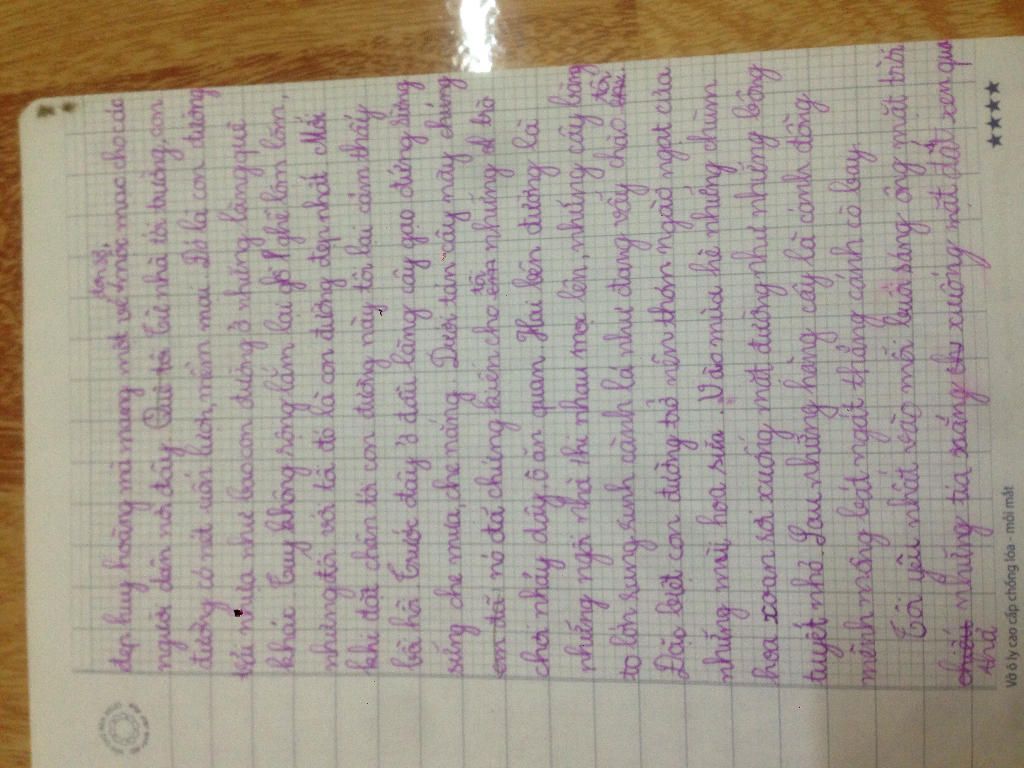 đẹp huy hoàng mà mang một vẻ đơn sơ, mộc mạc cho các
người dân nơi đây. Quê tôi từ nhà tới trường, con
đường có nét uốn lượn, mềm mại. Đó là con đường
nựa như bao con đường ở những làng quê
khác. Tuy không rộng lắm lại gồ nghề lồm lồm,
nhưng đối với tô đó là con đường đẹp nhất. Mỗi
khi đặt chân tới con đường này tôi lại cảm thấy
bồi hồi. Trước đây ở đầu làng cây gạo đứng sừng
sững che mưa, che nắng. Dưới tán cây mây chúng
em đã nó đã chứng kiến cho em tôi những
chơi nhảy dây ô ăn quan. Hai bên đường là
những ngôi nhà thi nhau mọc lên, những cây bàng
to lớn sung sinh cành lá như đang vẫy chào tôi
Đặc biệt con đường trở nên thơm ngào ngạt của
những mùi hoa sữa. Vào mùa hè những chùm
hoa xoan rơi xuống mặt đường như những bông
tuyết nhỏ. Sau những hàng cây là cánh đồng
mênh mông bát ngát thẳng cánh cò bay.
Tôi yêu nhất vào mỗi buổi sáng ông mặt trời
thả những tia nắng xuống mặt đất xen qua
Vở ô ly cao cấp chống lóa - mỏi mắt
★★★★